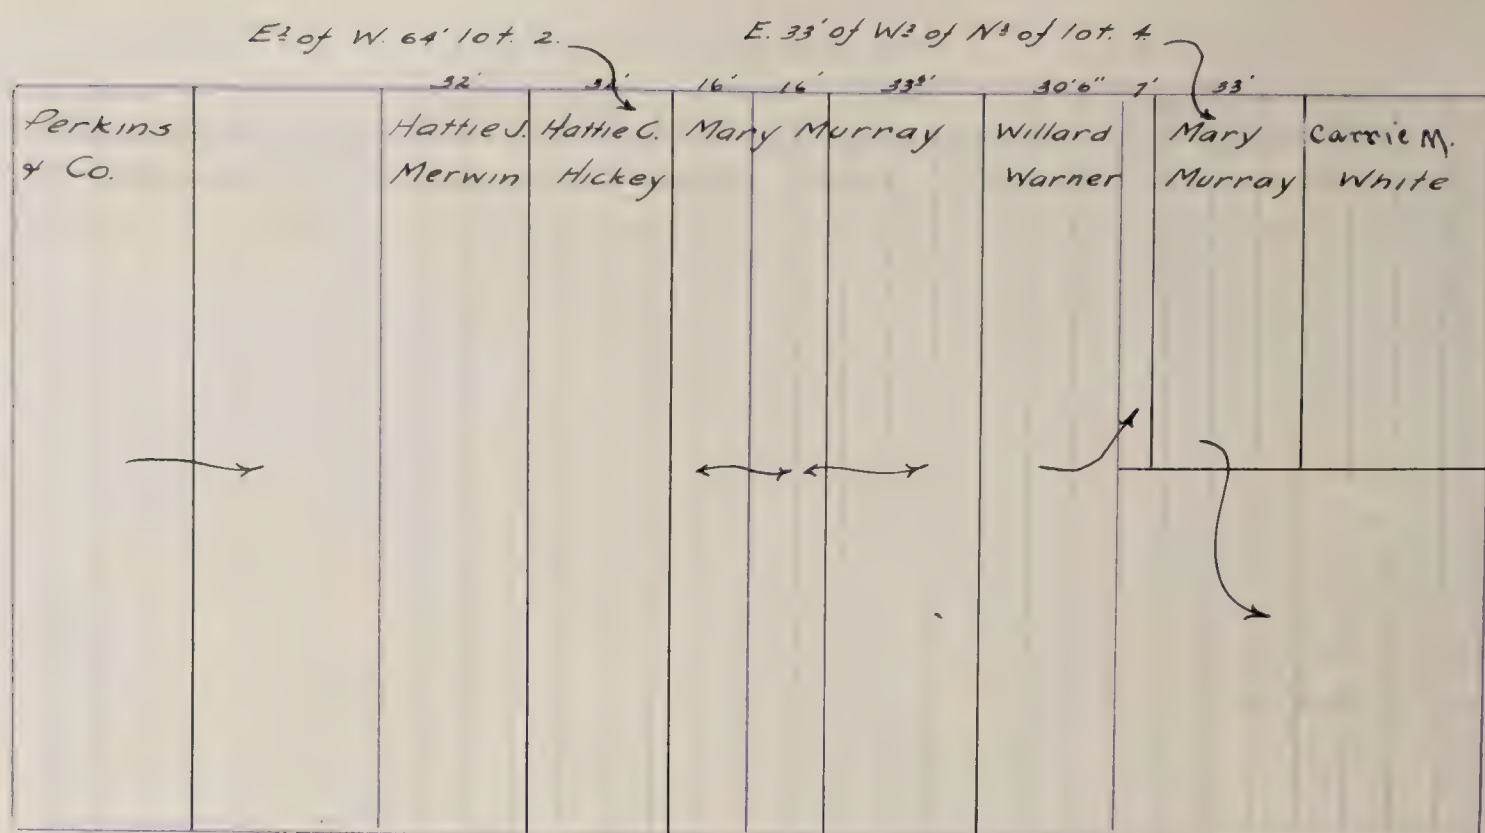 E½ of W. 64' lot. 2.
E. 33' of W½ of N½ of lot. 4.
32' 32' 16' 16' 33⁵' 30'6" 7' 33'
Perkins & Co.
Hattie J. Merwin
Hattie C. Hickey
Mary Murray
Willard Warner
Mary Murray
Carrie M. White